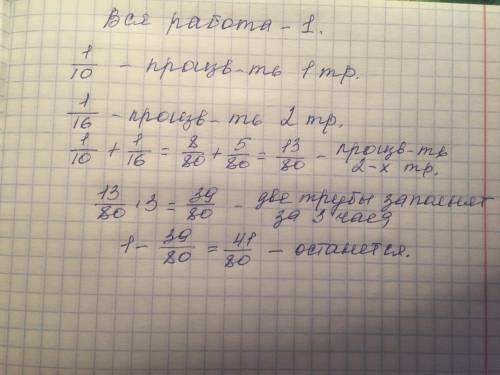 Вся работа - 1.
1/10 - произв-ть 1 тр.
1/16 - произв-ть 2 тр.
1/10 + 1/16 = 8/80 + 5/80 = 13/80 - произв-ть 2-х тр.
13/80 · 3 = 39/80 - две трубы заполнят за 3 часа
1 - 39/80 = 41/80 - останется.